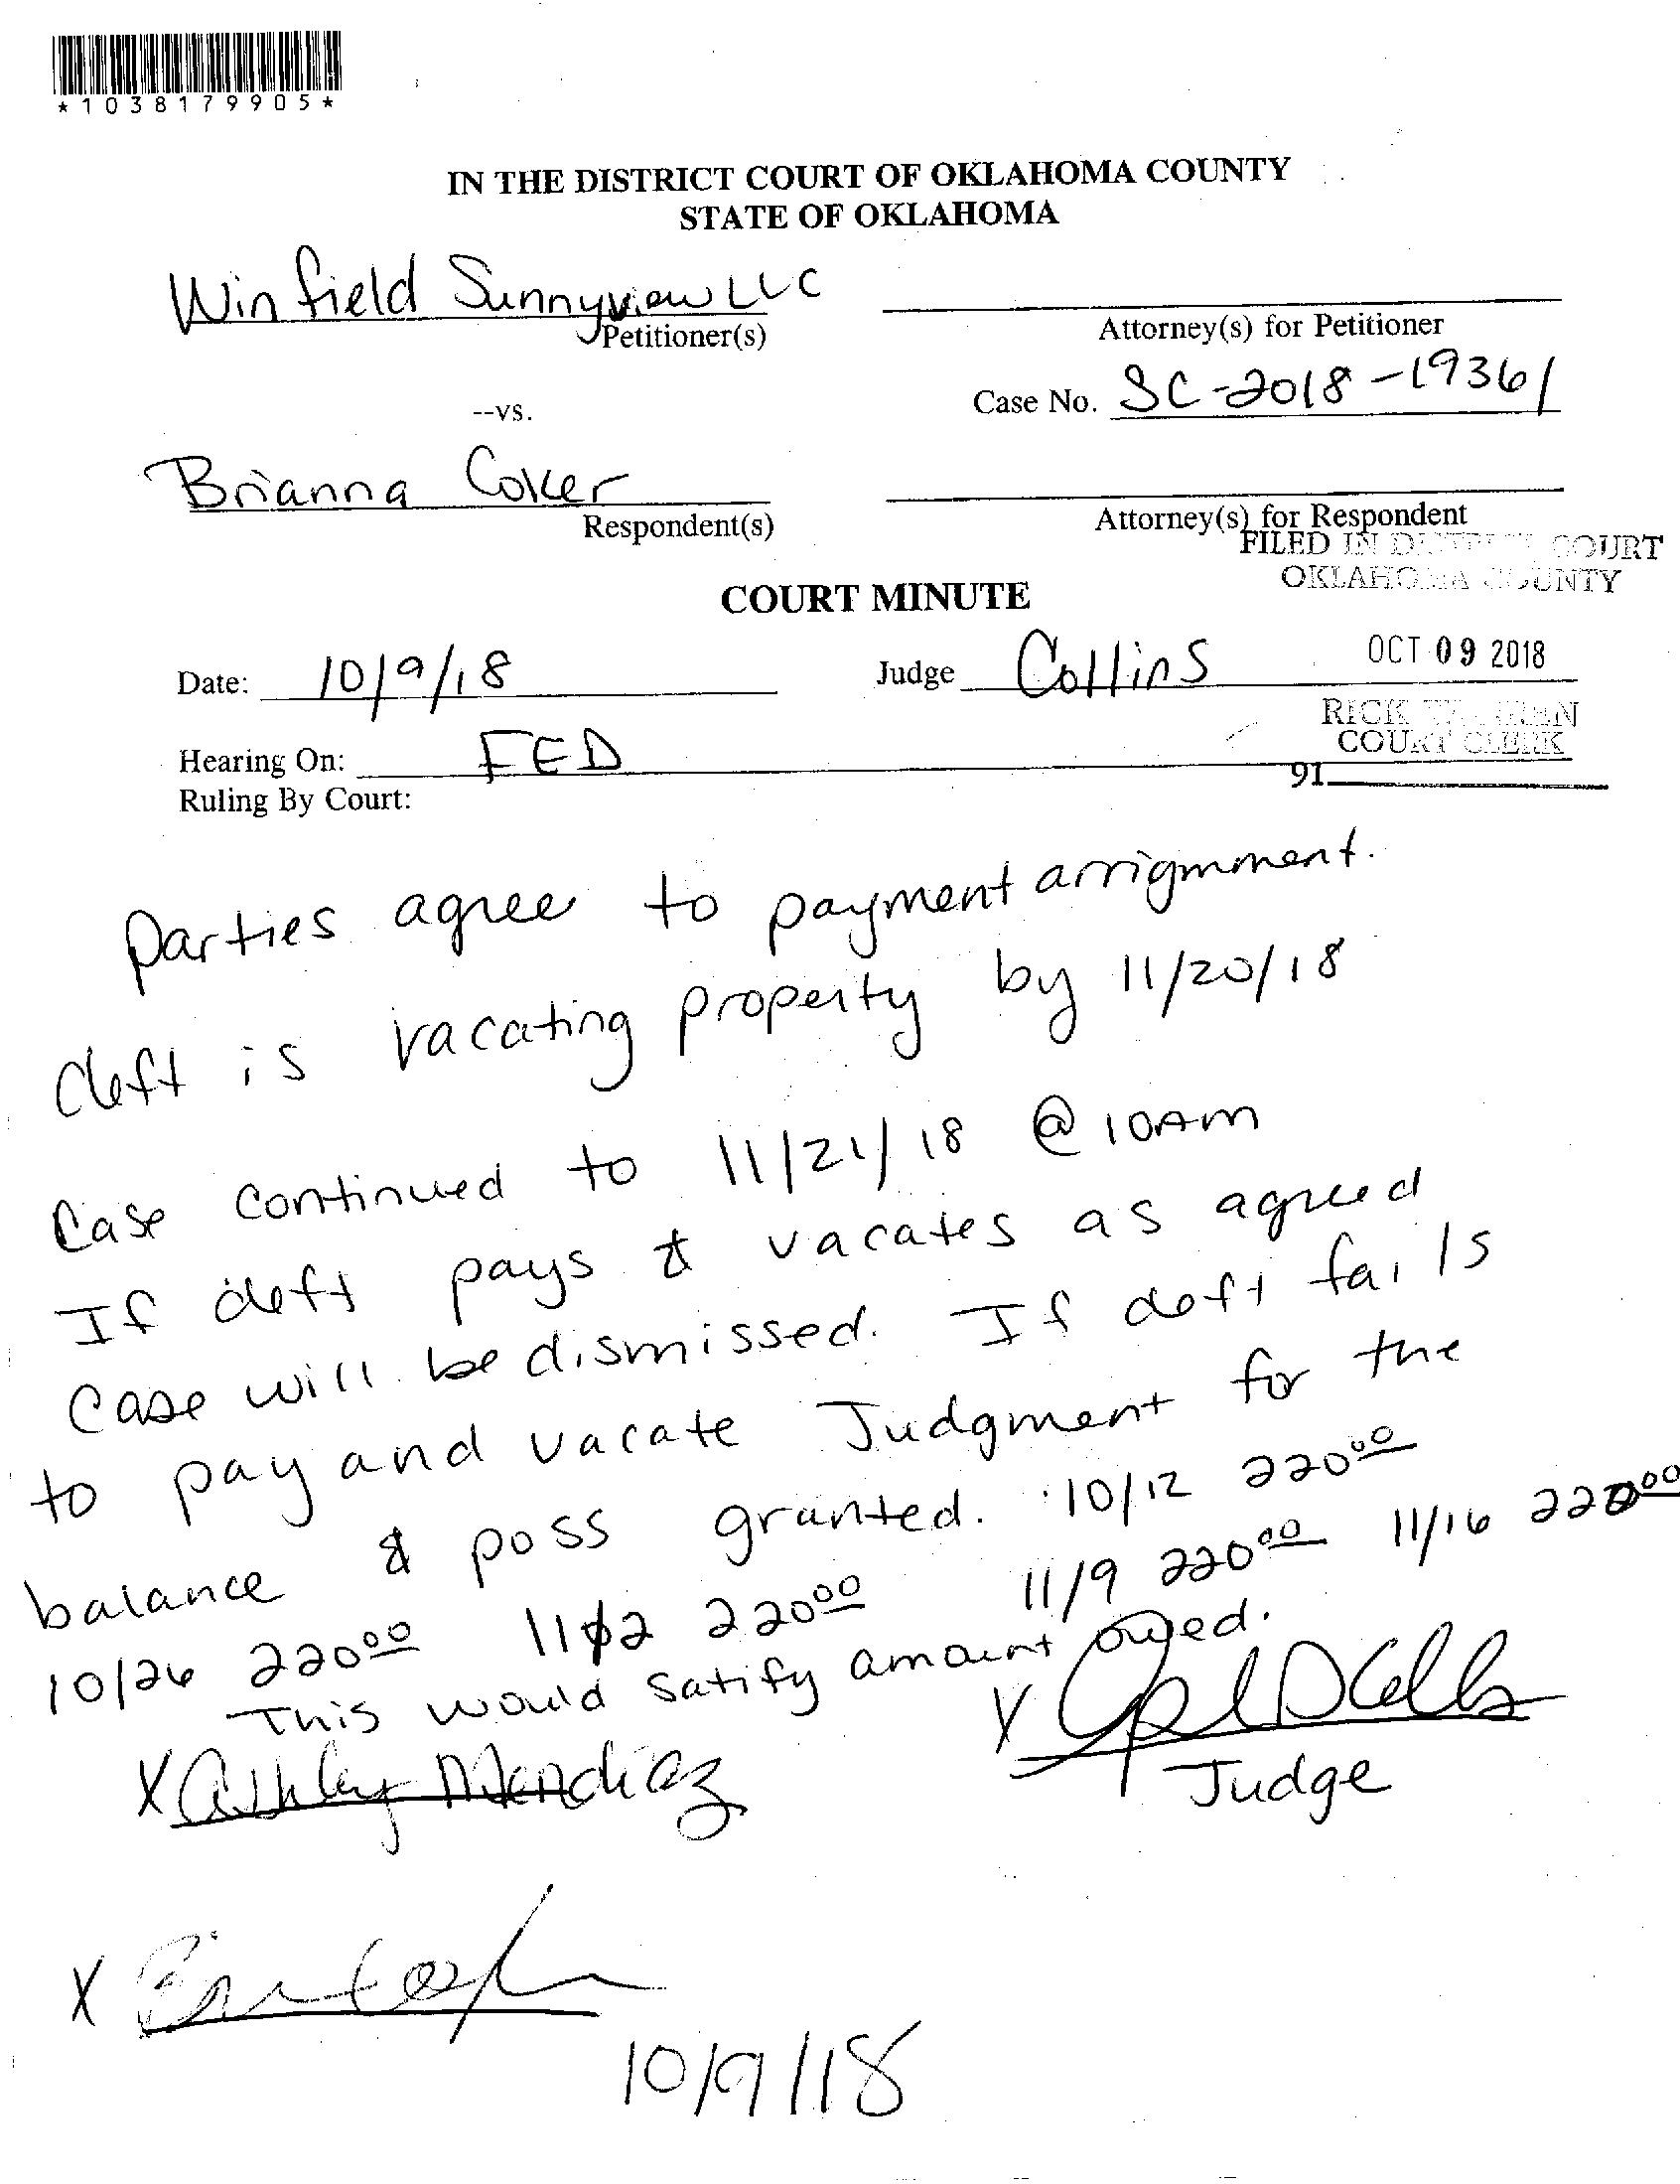 *1038179905*
IN THE DISTRICT COURT OF OKLAHOMA COUNTY
STATE OF OKLAHOMA
Winfield Sunnyview LLC
Petitioner(s)
Attorney(s) for Petitioner
--vs.
Case No. SC-2018-19361
Brianna Coker
Respondent(s)
Attorney(s) for Respondent
FILED IN DISTRICT COURT
OKLAHOMA COUNTY
COURT MINUTE
Date: 10/9/18
Judge Collins
OCT 09 2018
RICK WARREN
COURT CLERK
Hearing On: FED
91
Ruling By Court:
Parties agree to payment arrignment.
deft is vacating property by 11/20/18
Case continued to 11/21/18 @ 10AM
If deft pays & vacates as agreed
case will be dismissed. If deft fails
to pay and vacate Judgment for the
balance & poss granted. 10/12 220⁰⁰
10/26 220⁰⁰ 11/2 220⁰⁰ 11/9 220⁰⁰ 11/16 220⁰⁰
This would satify amount owed.
X Ashley Mendiaz
X
Judge
X
10/9/18